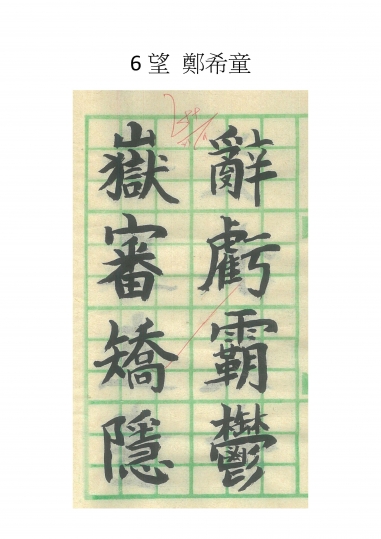 6望 鄭希童
辭虧霸鬱
嶽審矯隱